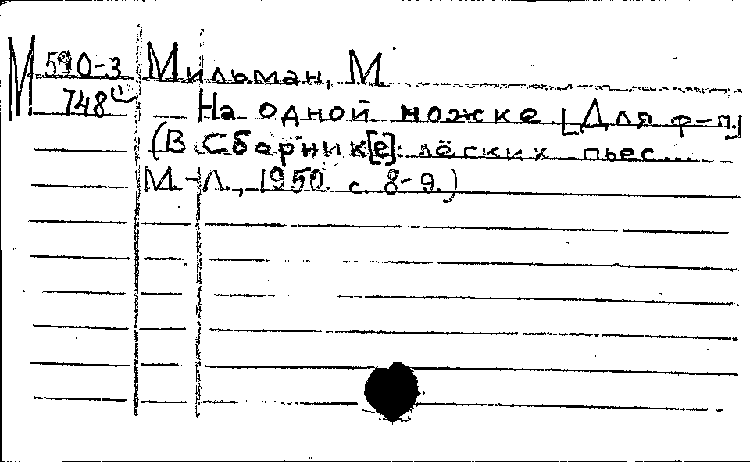 М 590-3 Мильман, М
748(1) На одной ножке [Для ф-п]
(В Сборник[е]: лёгких пьес...
М.-Л., 1950. с. 8-9.)